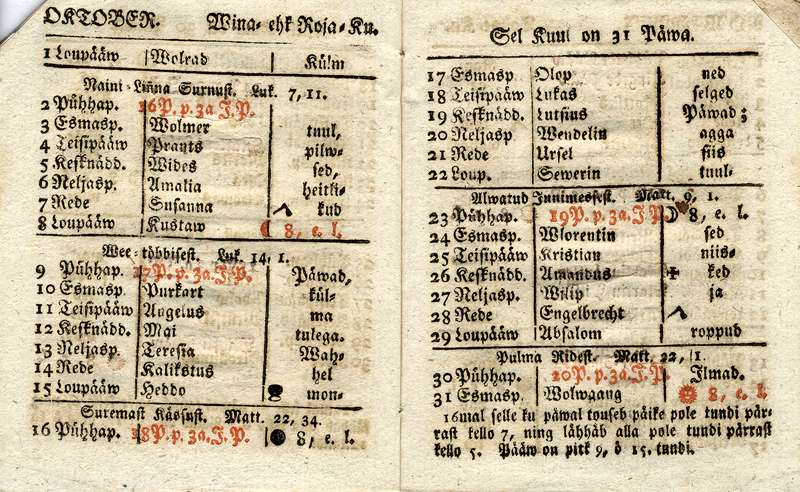 OKTOBER. Wina- ehk Roja-Ku.
1 Loupääw Wolrad Külm
Naini-Linna Surnust. Luk. 7, 11.
2 Pühhap. 16 P. p. 3a. J. P.
3 Esmasp. Wolmer tuul,
4 Teisipääw Prants pilw-
5 Kesknädd. Wides sed,
6 Neljasp. Amalia heitli-
7 Rede Susanna kud
8 Loupääw Kustaw 8, e. l.
Wee-többisest. Luk. 14, 1.
9 Pühhap. 17 P. p. 3a. J. P. Päwad,
10 Esmasp. Purkart kül-
11 Teisipääw Augelus ma
12 Kesknädd. Mai tulega.
13 Neljasp. Teresia Wah-
14 Rede Kalikstus hel
15 Loupääw Heddo mon-
Suremast Kässust. Matt. 22, 34.
16 Pühhap. 18 P. p. 3a. J. P. 8, e. l.
Sel Kuul on 31 Päwa.
17 Esmasp. Olop ned
18 Teisipääw Lukas selged
19 Kesknädd. Lutsius Päwad;
20 Neljasp Wendelin agga
21 Rede Ursel siis
22 Loup. Sewerin tuul-
Alwatud Innimessest. Matt. 9, 1.
23 Pühhap. 19 P. p. 3a. J. P. 8, e. l.
24 Esmasp. Wlorentin sed
25 Teisipääw Kristian niis-
26 Kesknädd. Amandus ked
27 Neljasp. Wilip ja
28 Rede Engelbrecht
29 Loupääw Absalom roppud
Pulma Ridest. Matt. 22, 1.
30 Pühhap. 20 P. p. 3a. J. P. Ilmad.
31 Esmasp. Wolwgang 8, e. l.
16mal selle ku päwal touseb päike pole tundi pär-
rast kello 7, ning lähhäb alla pole tundi pärrast
kello 5. Pääw on pitk 9, ö 15. tundi.